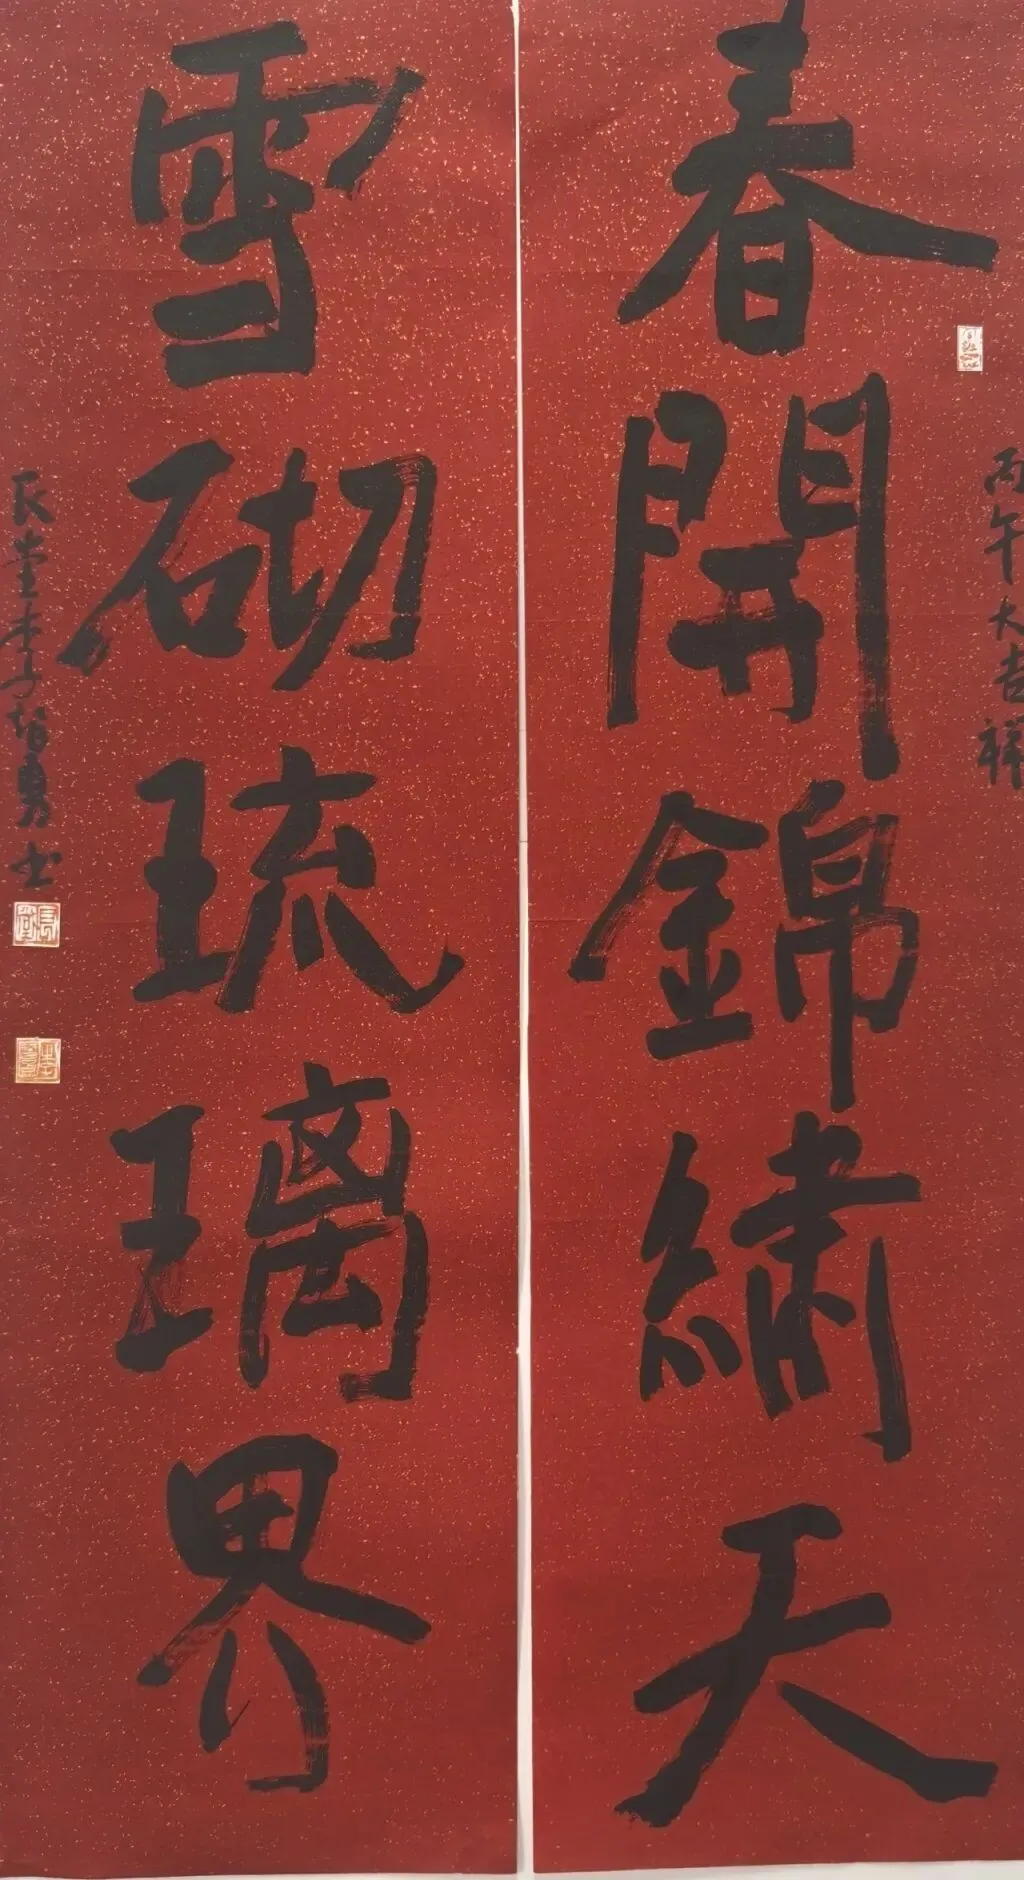 春開錦繡天
丙午大吉祥
雪砌琉璃界
長堂李智勇书